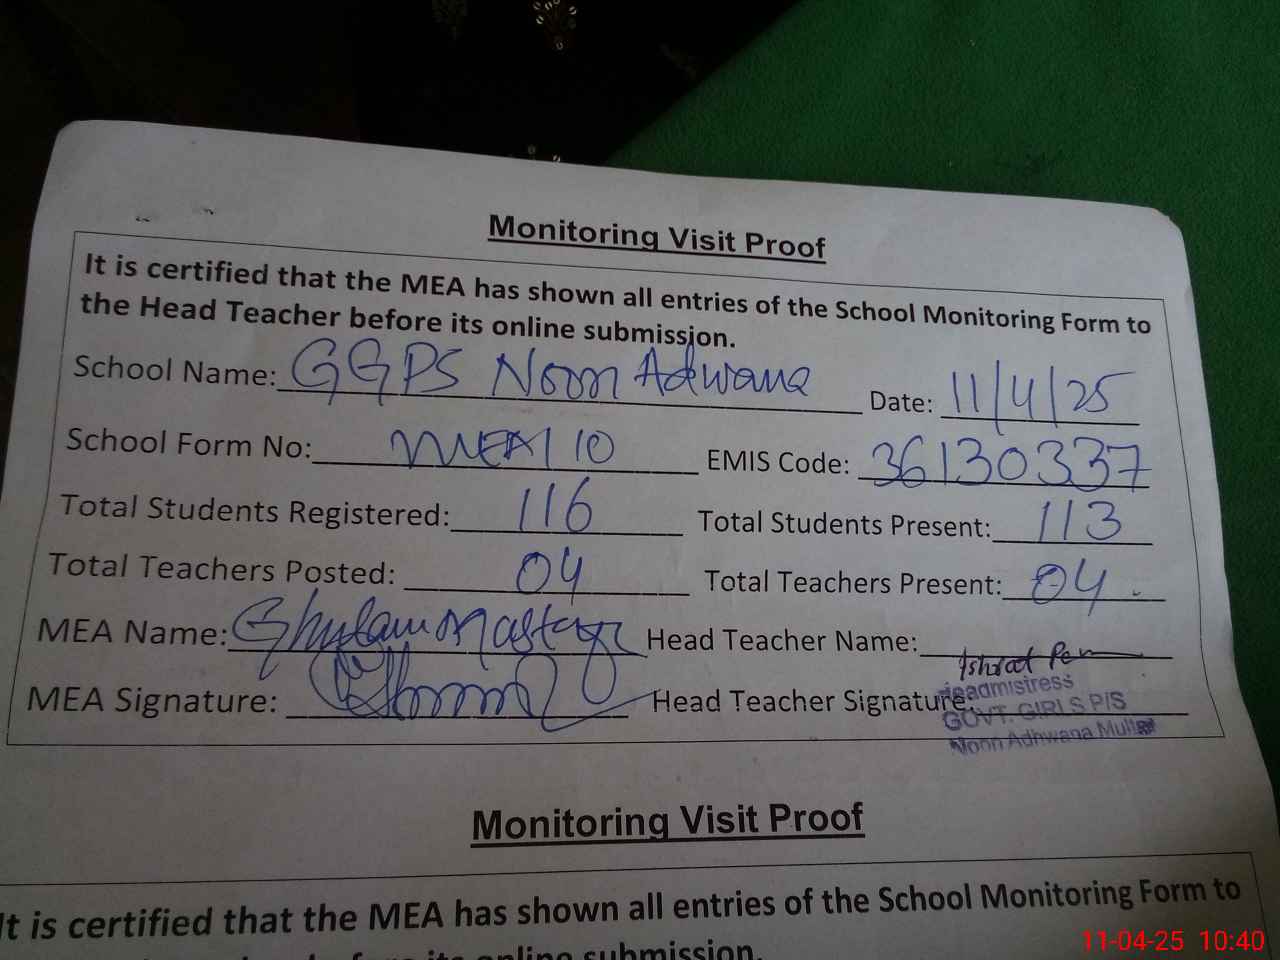 Monitoring Visit Proof
It is certified that the MEA has shown all entries of the School Monitoring Form to
the Head Teacher before its online submission.
School Name: GGPS Noon Adwana Date: 11/4/25
School Form No: MEA 10 EMIS Code: 36130337
Total Students Registered: 116 Total Students Present: 113
Total Teachers Posted: 04 Total Teachers Present: 04
MEA Name: Ghulam Head Teacher Name: Ishrat
MEA Signature: Head Teacher Signature:
Headmistress
GOVT. GIRLS P/S
Noon Adhwana
Monitoring Visit Proof
It is certified that the MEA has shown all entries of the School Monitoring Form to
its online submission.
11-04-25 10:40